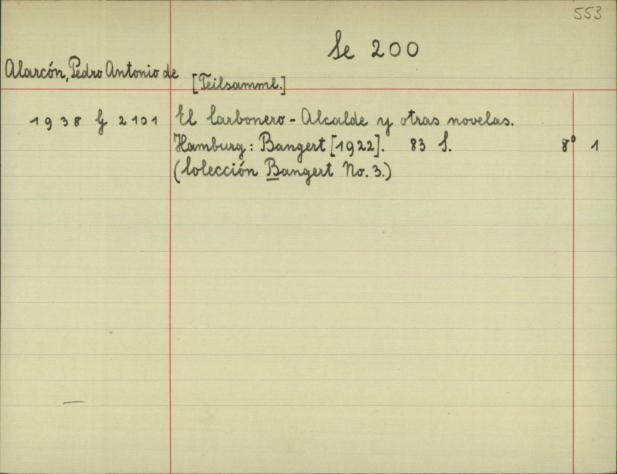 553
Se 200
Alarcón, Pedro Antonio de
[Teilsamml.]
1938 G 2101 El Carbonero-Alcalde y otras novelas.
Hamburg: Bangert [1922]. 83 S. 8° 1
(Colección Bangert No. 3.)